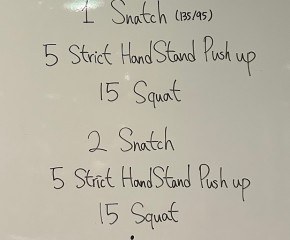 1 Snatch (135/95)
5 Strict HandStand Push up
15 Squat
2 Snatch
5 Strict HandStand Push up
15 Squat